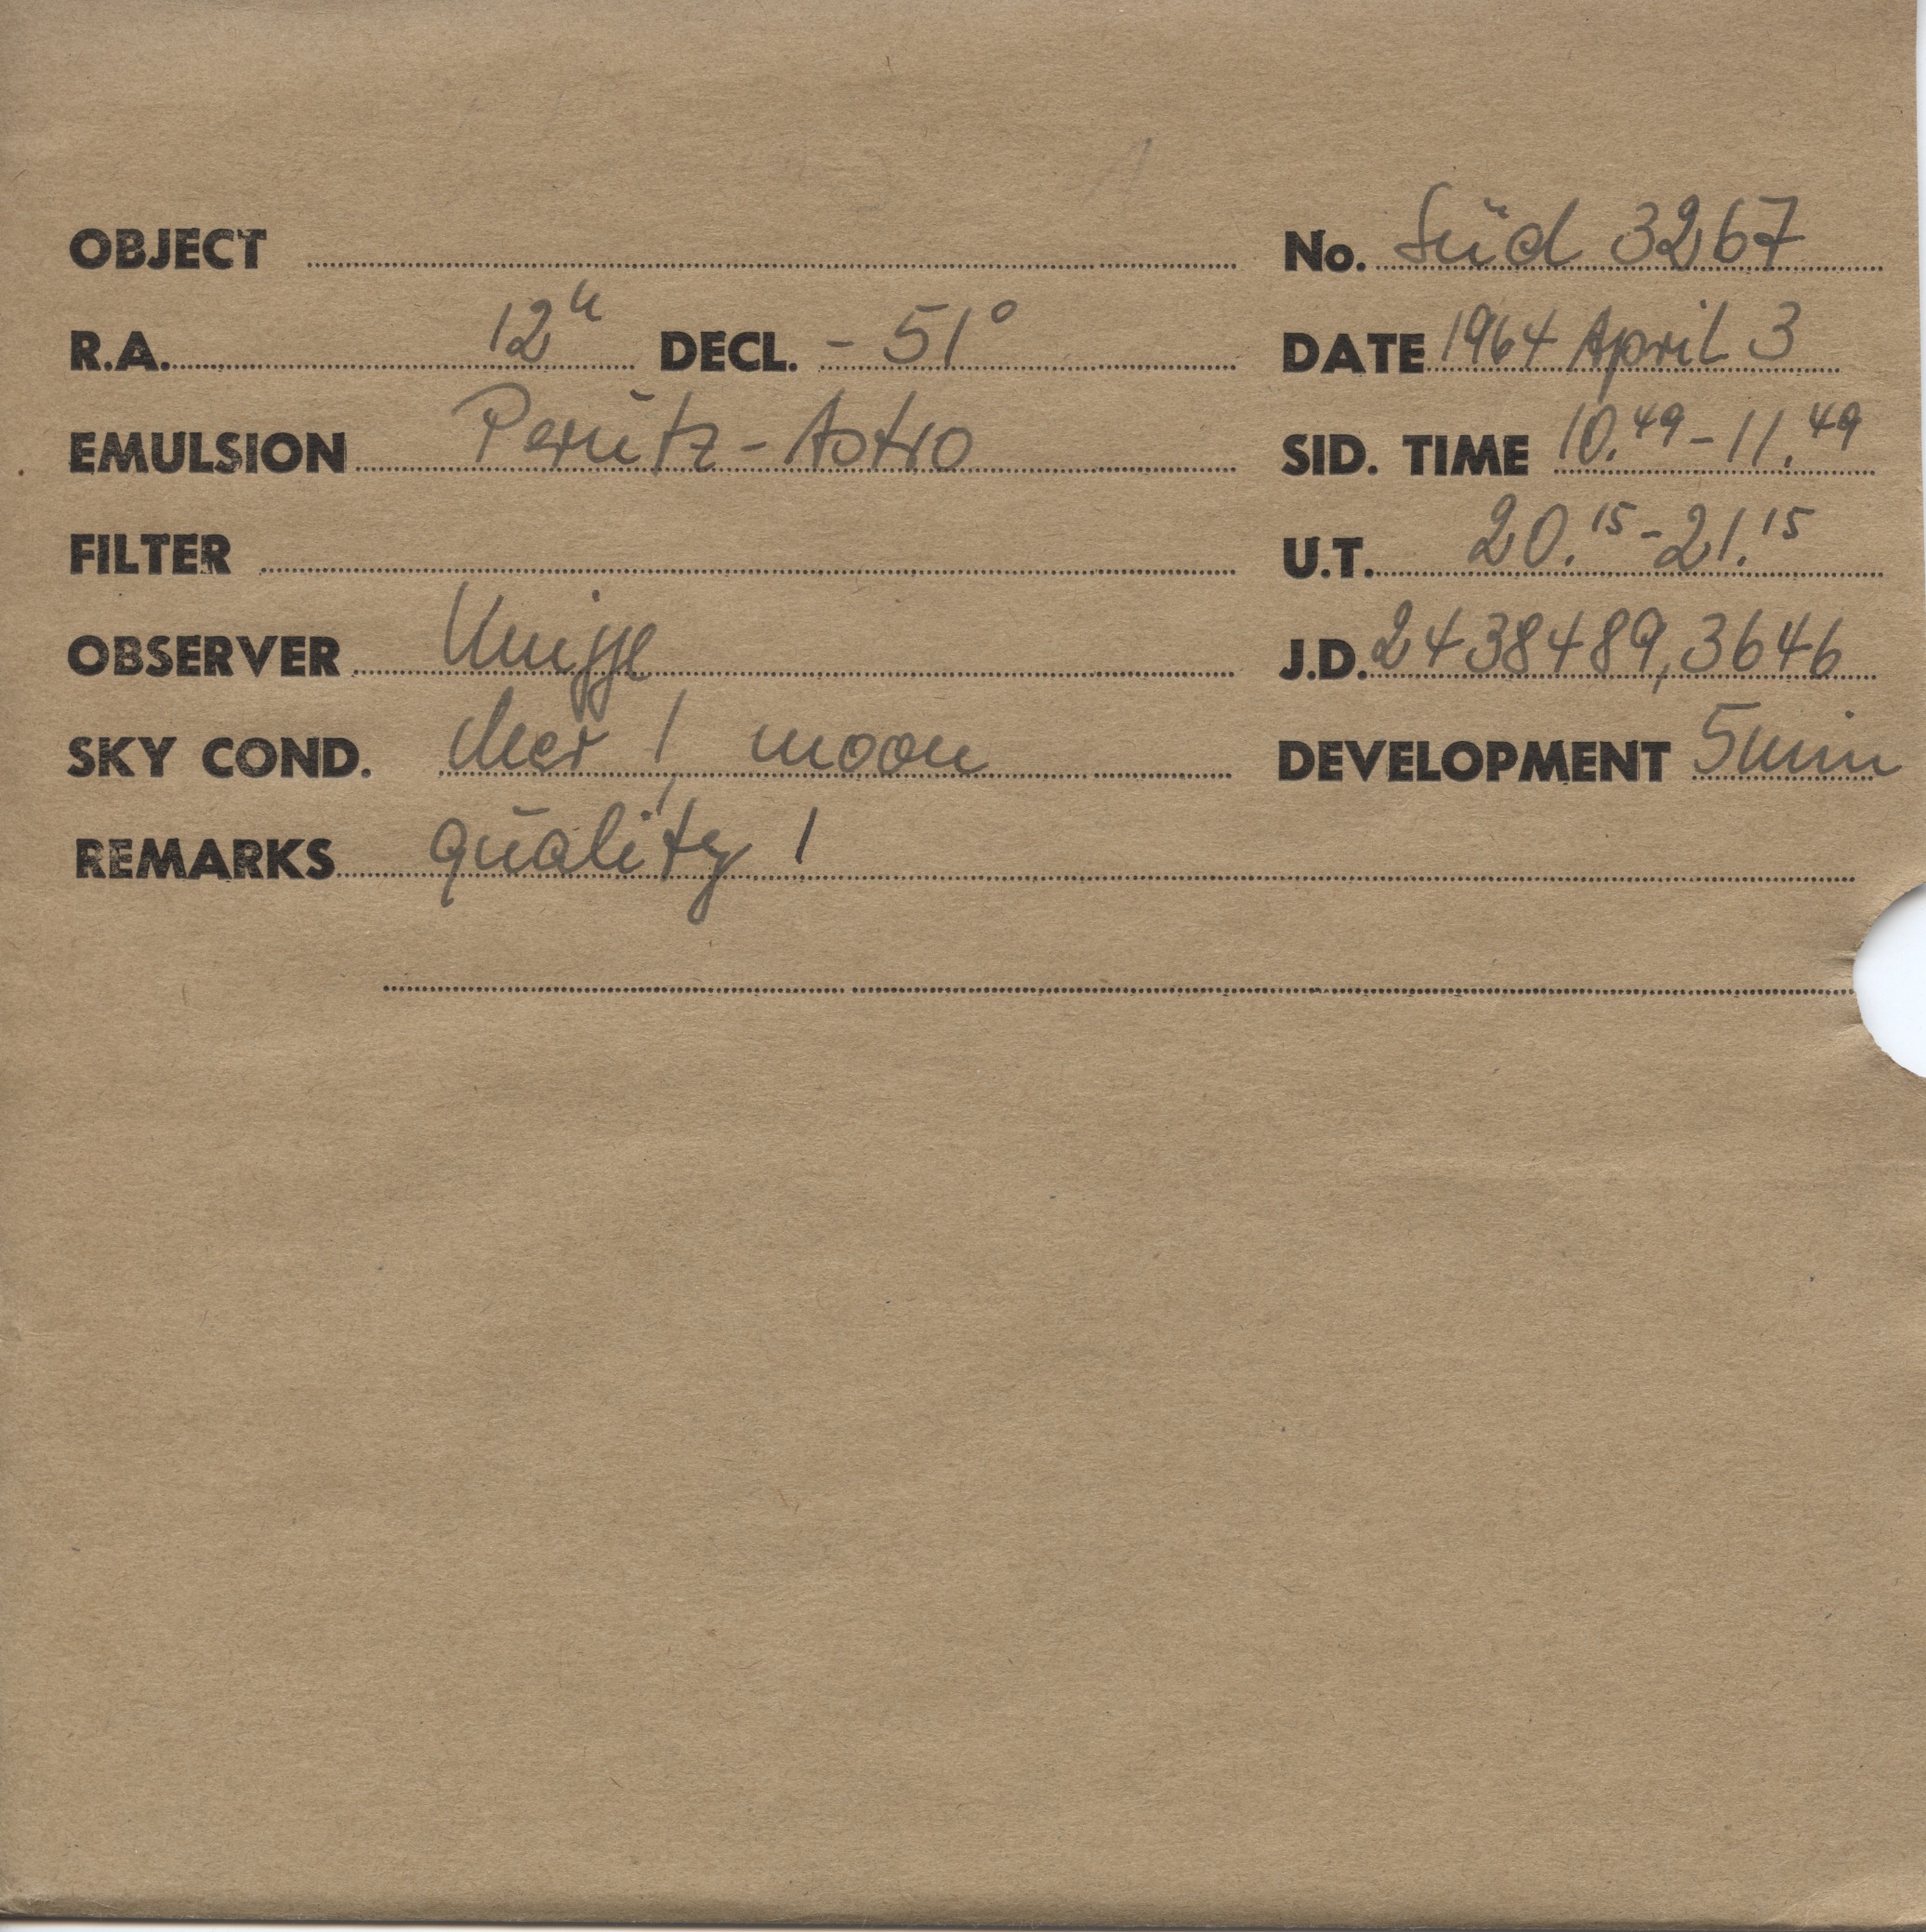 OBJECT No. Süd 3267
R.A. 12h DECL. - 51° DATE 1964 April 3
EMULSION Perutz-Astro SID. TIME 10.49-11.49
FILTER U.T. 20.15-21.15
OBSERVER Knigge J.D. 2438489,3646
SKY COND. clear, moon DEVELOPMENT 5min
REMARKS quality 1